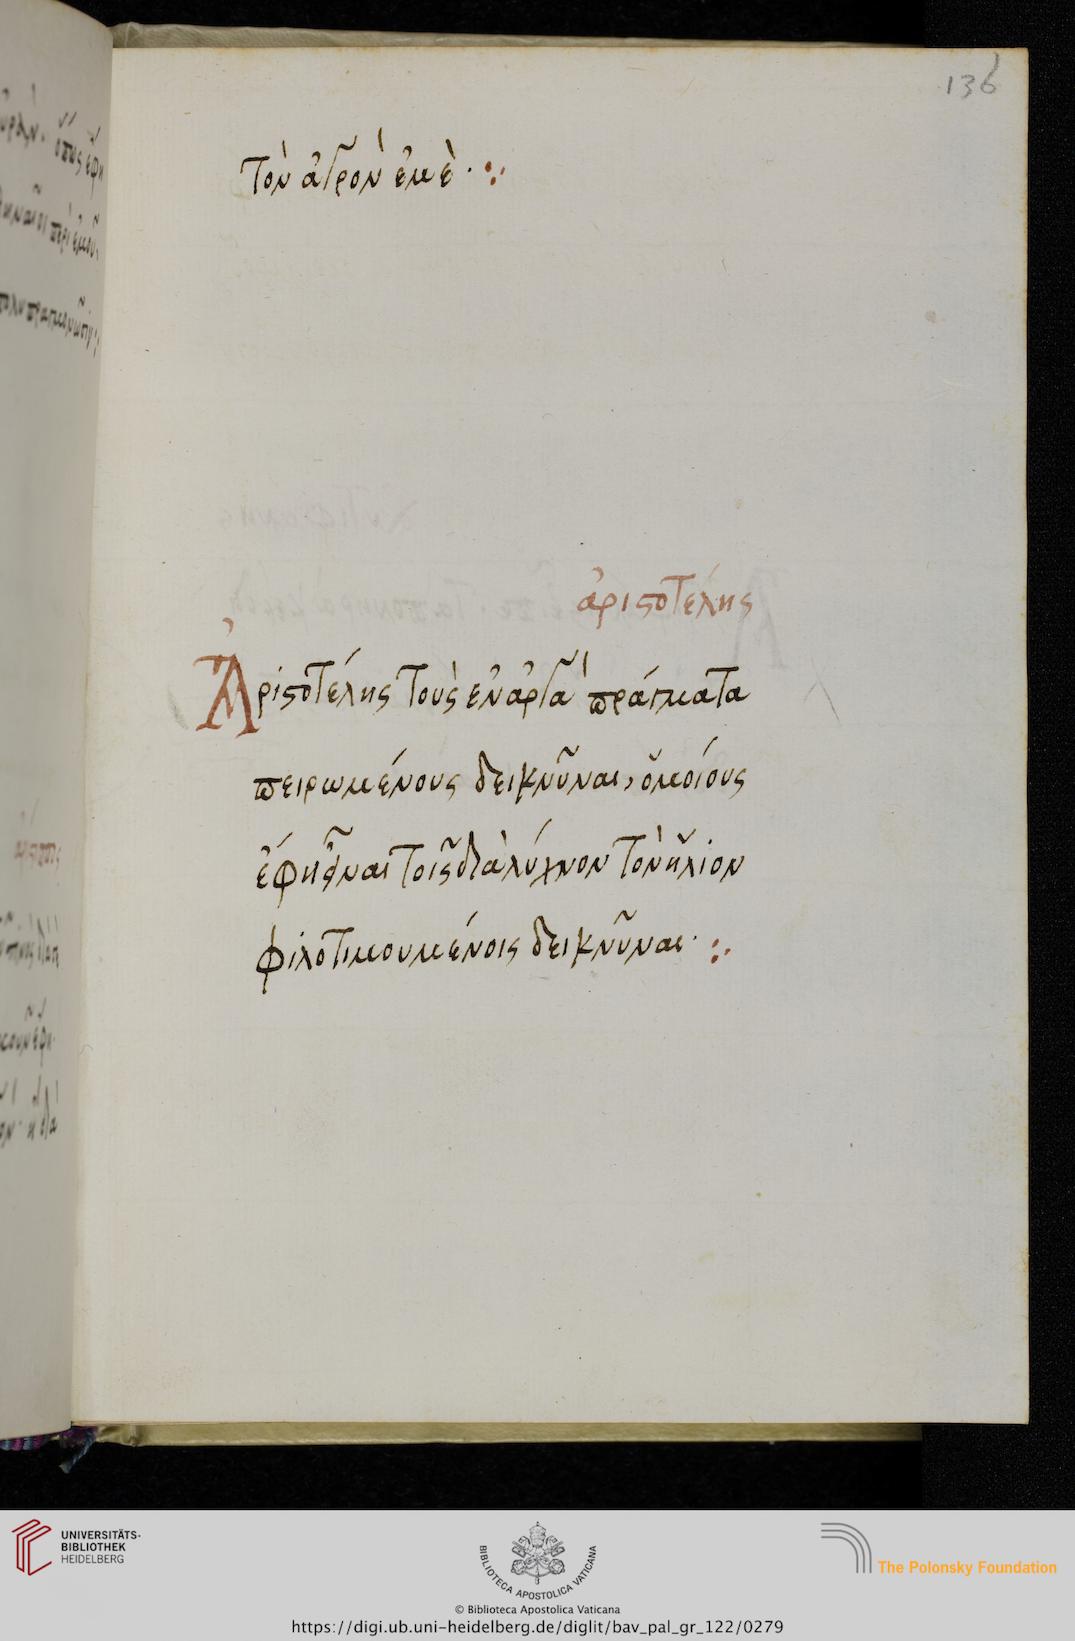 136
τὸν ἀγρὸν ἐμὲ·
ἀριστοτέλης
Ἀριστοτέλης τοὺς ἐναργῆ πράγματα
πειρωμένους δεικνῦναι, ὁμοίους
ἔφη εἶναι τοῖς διὰ λύχνον τὸν ἥλιον
φιλοτιμουμένοις δεικνῦναι·
UNIVERSITÄTS-
BIBLIOTHEK
HEIDELBERG
BIBLIOTECA APOSTOLICA VATICANA
The Polonsky Foundation
© Biblioteca Apostolica Vaticana
https://digi.ub.uni-heidelberg.de/diglit/bav_pal_gr_122/0279